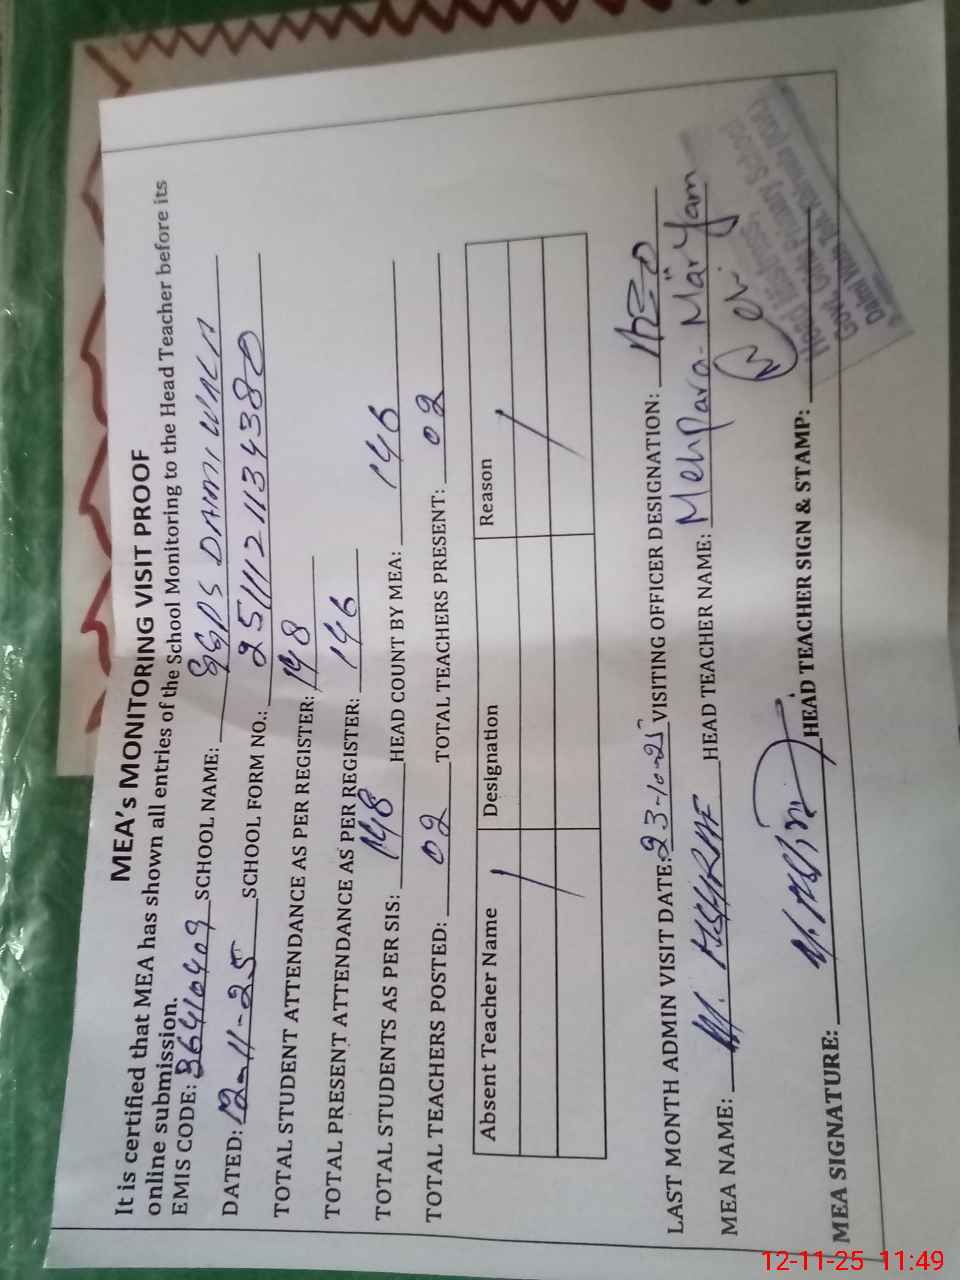 MEA's MONITORING VISIT PROOF
It is certified that MEA has shown all entries of the School Monitoring to the Head Teacher before its
online submission.
EMIS CODE: 36410409 SCHOOL NAME: GGPS DAIMI WALA
DATED: 12-11-25 SCHOOL FORM NO.: 2511121134380
TOTAL STUDENT ATTENDANCE AS PER REGISTER: 148
TOTAL PRESENT ATTENDANCE AS PER REGISTER: 146
TOTAL STUDENTS AS PER SIS: 148 HEAD COUNT BY MEA: 146
TOTAL TEACHERS POSTED: 02 TOTAL TEACHERS PRESENT: 02
Absent Teacher Name Designation Reason
LAST MONTH ADMIN VISIT DATE: 23-10-25 VISITING OFFICER DESIGNATION: AEO
MEA NAME: M. ASHRAF HEAD TEACHER NAME: Mehpara-Maryam
MEA SIGNATURE: HEAD TEACHER SIGN & STAMP:
Head Mistress,
Govt. Girls Primary School
12-11-25 11:49